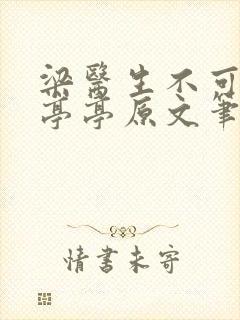 梁醫生不可
亭亭原文筆
情書未寄